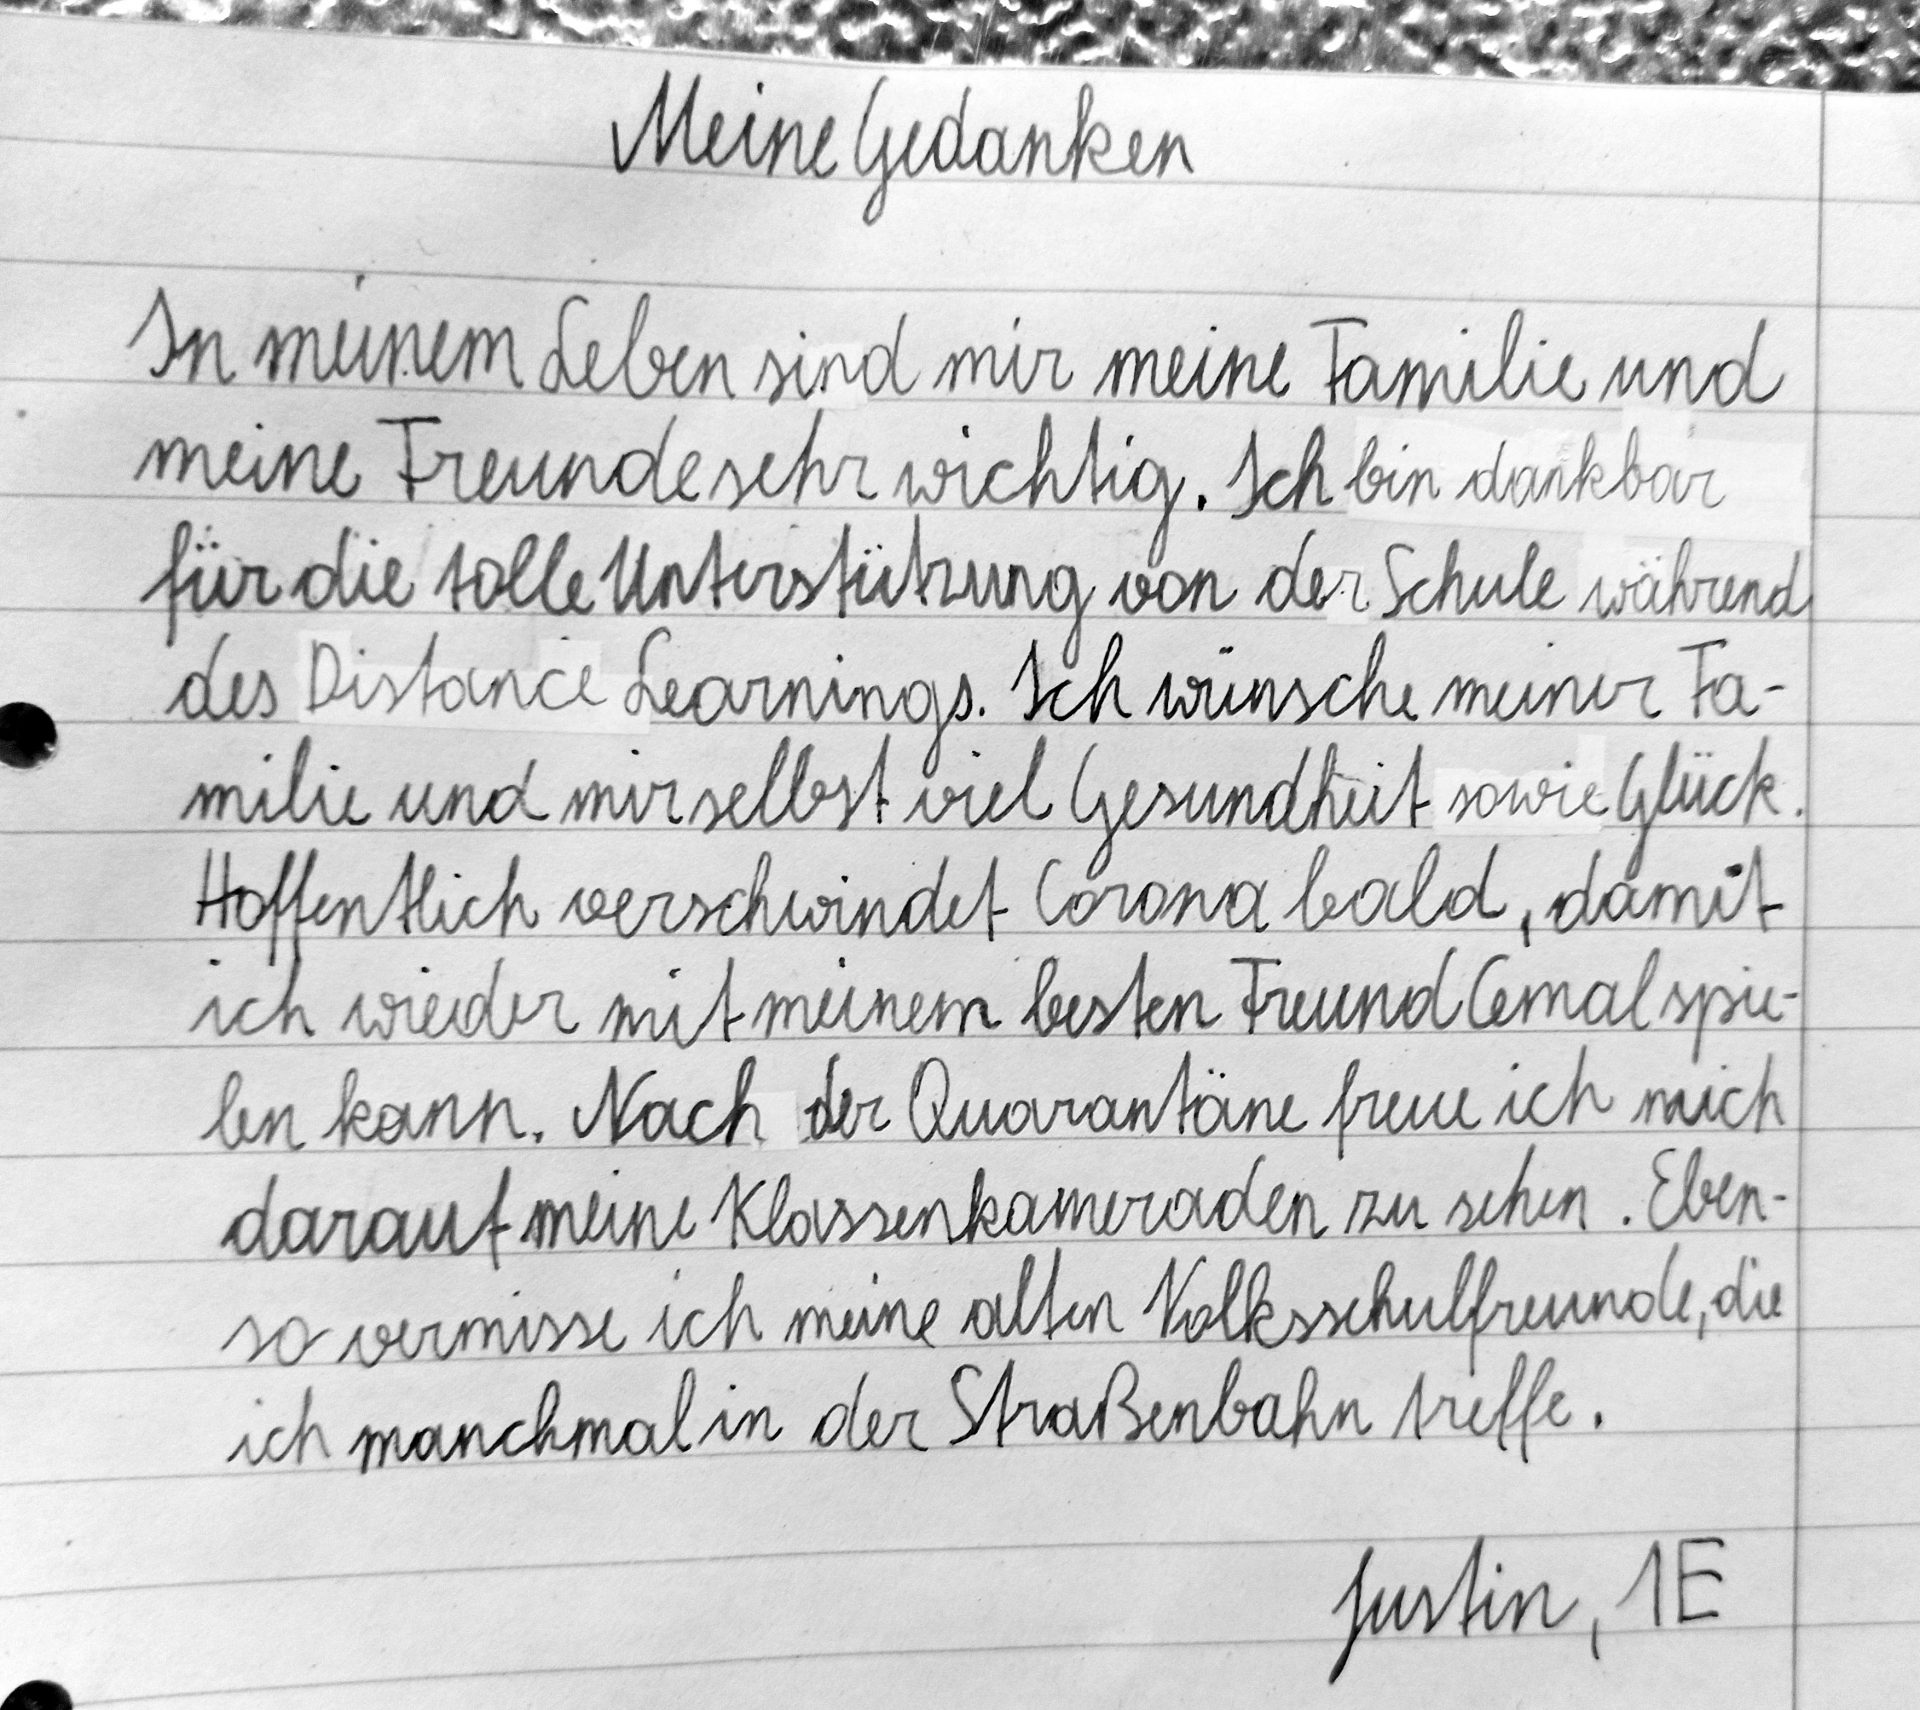 Meine Gedanken
In meinem Leben sind mir meine Familie und
meine Freunde sehr wichtig. Ich bin dankbar
für die tolle Unterstützung von der Schule während
des Distance Learnings. Ich wünsche meiner Fa-
milie und mir selbst viel Gesundheit sowie Glück.
Hoffentlich verschwindet Corona bald, damit
ich wieder mit meinem besten Freund Cemal spie-
len kann. Nach der Quarantäne freue ich mich
darauf meine Klassenkameraden zu sehen. Eben-
so vermisse ich meine alten Volksschulfreunde, die
ich manchmal in der Straßenbahn treffe.
Justin, 1E